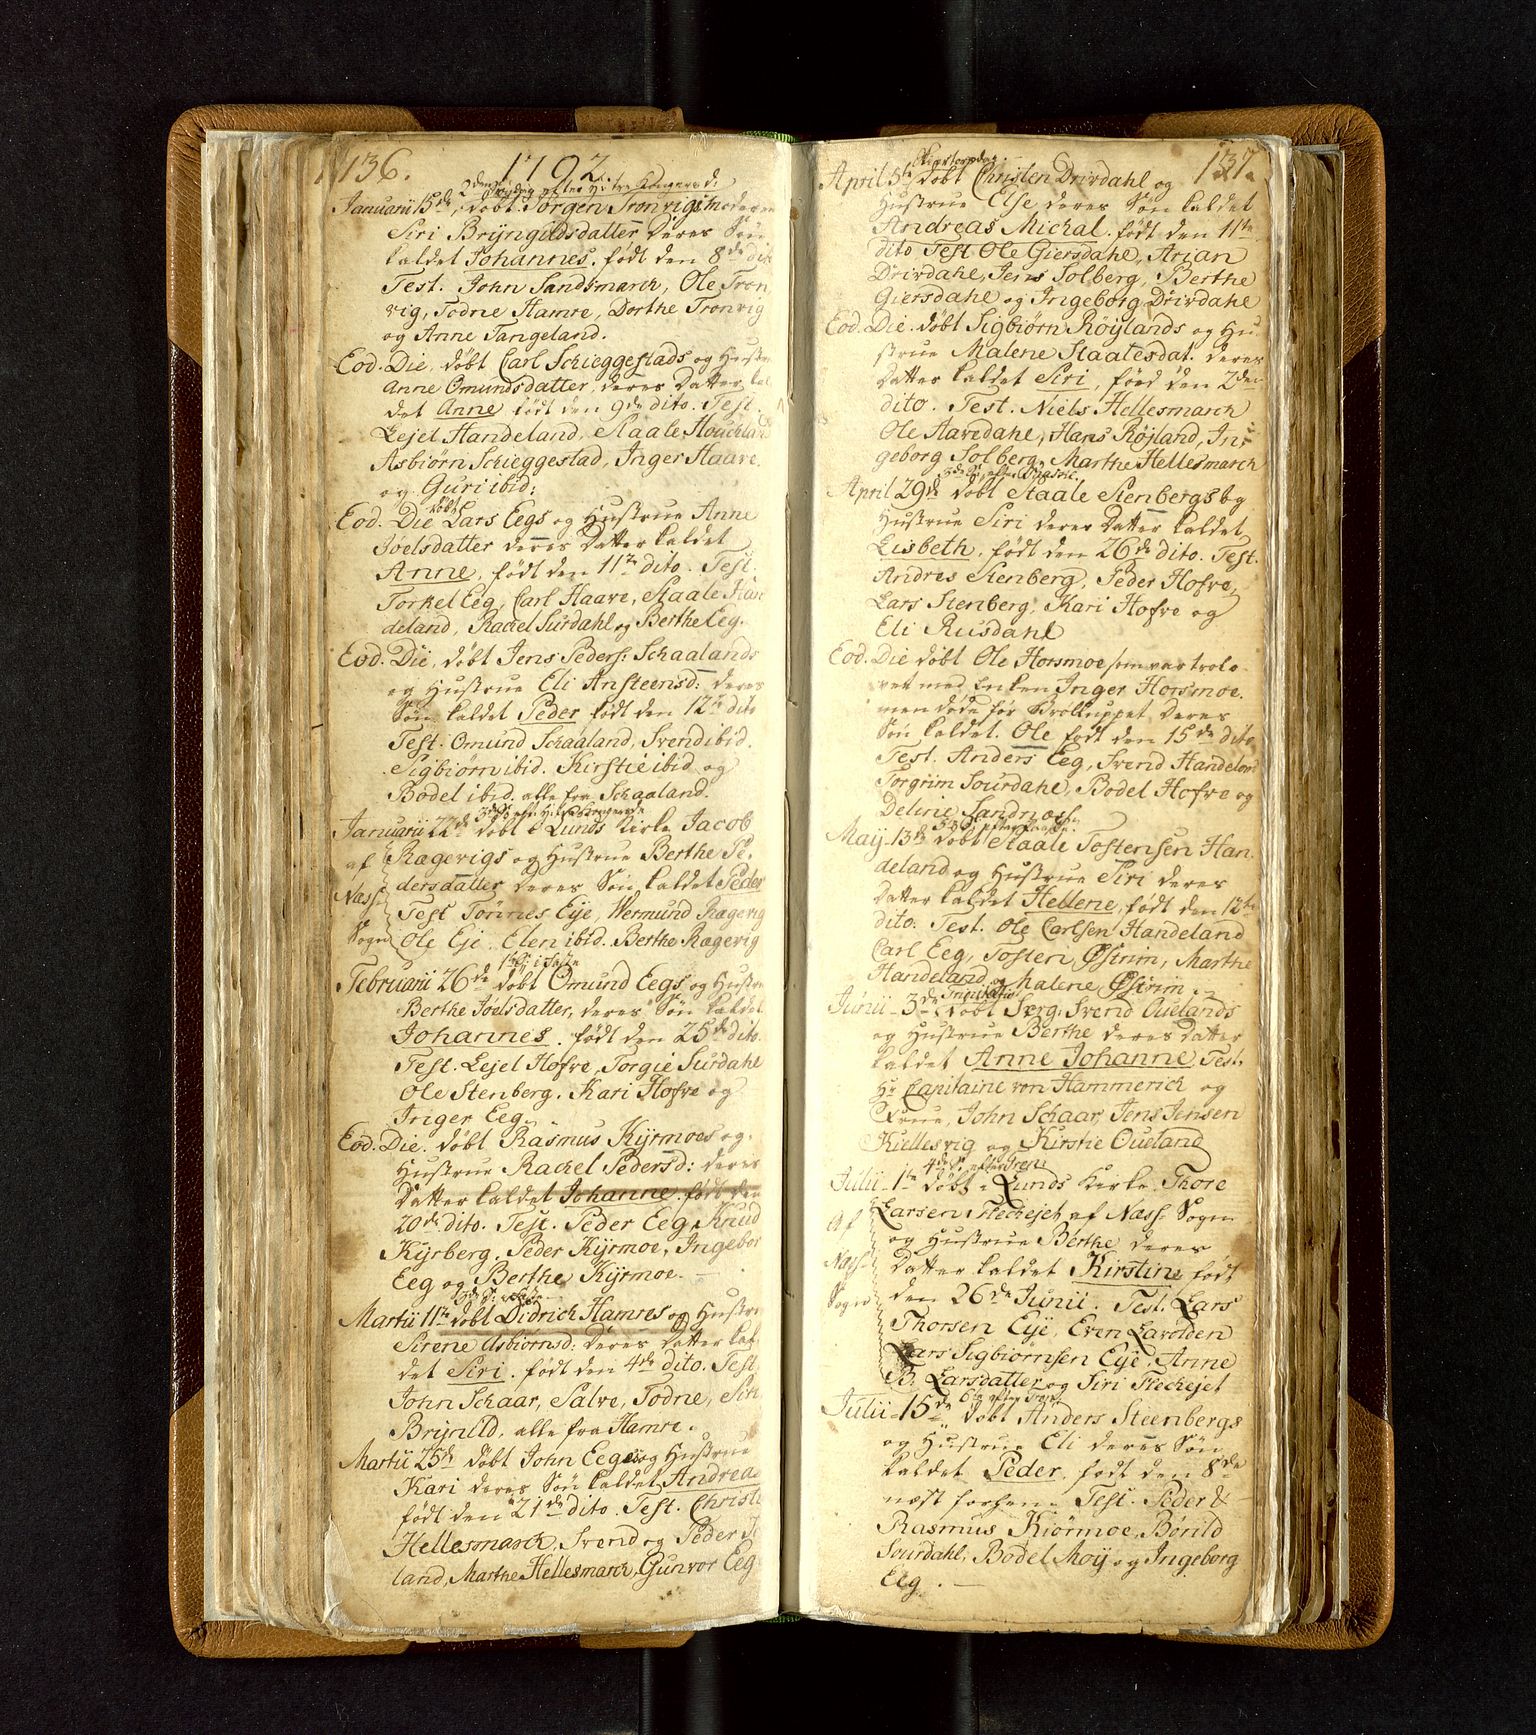 136.
1792.
2den Søndag efter H: tre Kongersd:
Januarii 15de, døbt Jørgen Tronvigs
Siri Brÿngildsdatter deres Søn
kaldet Johannes. født den 8de dito
Test. John Sandsmarch, Ole Tron
vig, Todne Hamre, Dorthe Tronvig
og Anne Tangeland.
Eod. Die, døbt Carl Schieggestads og Hustrue
Anne Omundsdatter, deres Datter kal
det Anne født den 9de dito. Test.
Lejel Handeland, Staale Houckland
Asbiørn Schieggestad, Inger Haave,
og Guri ibid:
Eod. Die døbt Lars Eegs og Hustrue Anne
Jöelsdatter deres Datter kaldet
Anne, født den 11te dito. Test.
Torkel Eeg, Carl Haave, Staale Han
deland, Rachel Surdahl og Berthe Eeg.
Eod. Die, døbt Jens Peders: Schaalands
og Hustrue Eli Ansteensd: deres
Søn kaldet Peder født den 12te dito
Test. Omund Schaaland, Svend ibid.
Sigbiørn ibid. Kirstie ibid og
Bodel ibid. alle fra Schaaland.
3die S. eft: H: tre Kongersd:
Januarii 22de døbt i Lunds Kirke Jacob
af Rægevigs og Hustrue Berthe Pe-
dersdatter deres Søn kaldet Peder
Næss Test Tönnes Eÿe, Wermund Rægevig
Sogn Ole Eje. Elen ibid. Berthe Rægevig
1te S: i Faste
Februarii 26de døbt Omund Eegs og Hustrue
Berthe Jöelsdatter, deres Søn kaldet
Johannes. født den 25de dito.
Test. Lejel Hofve, Torgie Surdahl
Ole Stenberg. Kari Hofve og
Inger Eeg.
Eod. Die. døbt Rasmus Kÿrmoes og
Hustrue Rachel Pedersd: deres
Datter kaldet Johanne. født den
20de dito. Test. Peder Eeg, Knud
Kÿrberg. Peder Kÿrmoe, Ingebor
Eeg og Berthe Kÿrmoe.
Martii 11te døbt Didrich Hamres og Hustrue
Sirene Asbiørnsd: deres Datter kal
det Siri. født den 4de dito. Test
John Schaar, Salve, Todne, Siri
Brÿnild, alle fra Hamre.
Martii 25de døbt John Eeges og Hustrue
Kari deres Søn kaldet Andreas
født den 21de dito. Test. Christ
Hellesmarch, Svend og Peder
land, Marthe Hellesmarch, Gunvor Eeg
137.
Skiertorsdag.
April 5te døbt Christen Drivdahl og
Hustrue Else deres Søn kaldet
Andreas Michal. født den 11te
dito Test Ole Giersdahl, Arian
Drivdahl, Jens Solberg, Berthe
Giersdahl og Ingeborg Drivdahl
Eod. Die. døbt Sigbiørn Röÿlands og Hu-
strue Malene Staalesdat. deres
Datter kaldet Siri, føed den 2den
dito. Test. Niels Hellesmarch
Ole Aavedahl, Hans Röjland, In-
geborg Solberg, Marthe Hellesmarch
3de S: efter Paaske.
April 29de døbt Staale Stenbergs og
Hustrue Siri deres Datter kaldet
Lisbeth. født den 26de dito. Test.
Andres Stenberg, Peder Hofve,
Lars Stenberg, Kari Hofve og
Eli Rusdahl
Eod. Die døbt Ole Horsmoe som var trolo-
vet med Enken Inger Horsmoe.
men døde før Brølluppet, deres
Søn kaldet. Ole født den 15de dito
Test. Anders Eeg, Svend Handeland
Torgrim Sourdahl, Bodel Hofve og
Delirie Sandnoes.
Maÿ 13de døbt Staale Tostensen Han-
deland og Hustrue Siri deres
Datter kaldet Hellene, født den 12te
dito. Test. Ole Carlsen Handeland
Carl Eeg, Tosten Østrim, Marthe
Handeland og Malene Østrim.
Trinitatis
Junii 3de døbt Serg: Svend Ouelands
og Hustrue Berthe deres Datter
kaldet Anne Johanne, Test.
Hr Capitaine von Hammerich og
Frue, John Schaar, Jens Jensen
Kiellesvig og Kirstie Oueland
4de S: efter Tref:
Julii 1te døbt i Lunds Kirke Thore
Af Larsen Fleckejet af Næss Sogn
og Hustrue Berthe deres
Næss Datter kaldet Kirstine født
Sogn den 26de Junii. Test. Lars
Thorsen Eÿe, Even Lavolden
Lars Sigbiørnsen Eÿe, Anne
B: Larsdatter og Siri Fleckejet
6te efter Tref:
Julii 15de døbt Anders Steenbergs
og Hustrue Eli deres Søn
kaldet Peder født den 8de
næst forhen. Test. Peder &
Rasmus Kiörmoe, Børild
Sourdahl, Bodel Moÿ og Ingeborg
Eeg.